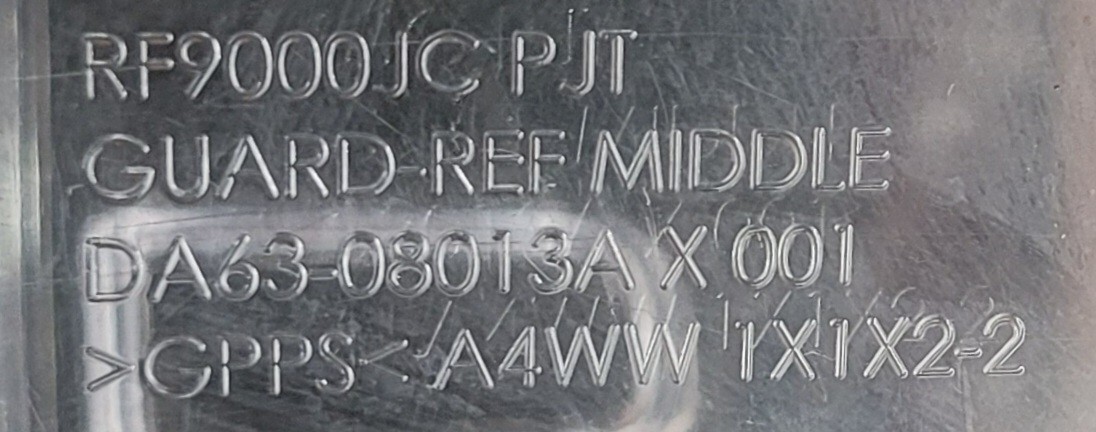 RF9000JC PJT
GUARD-REF MIDDLE
DA63-08013A X 001
>GPPS< A4WW 1X1X2-2